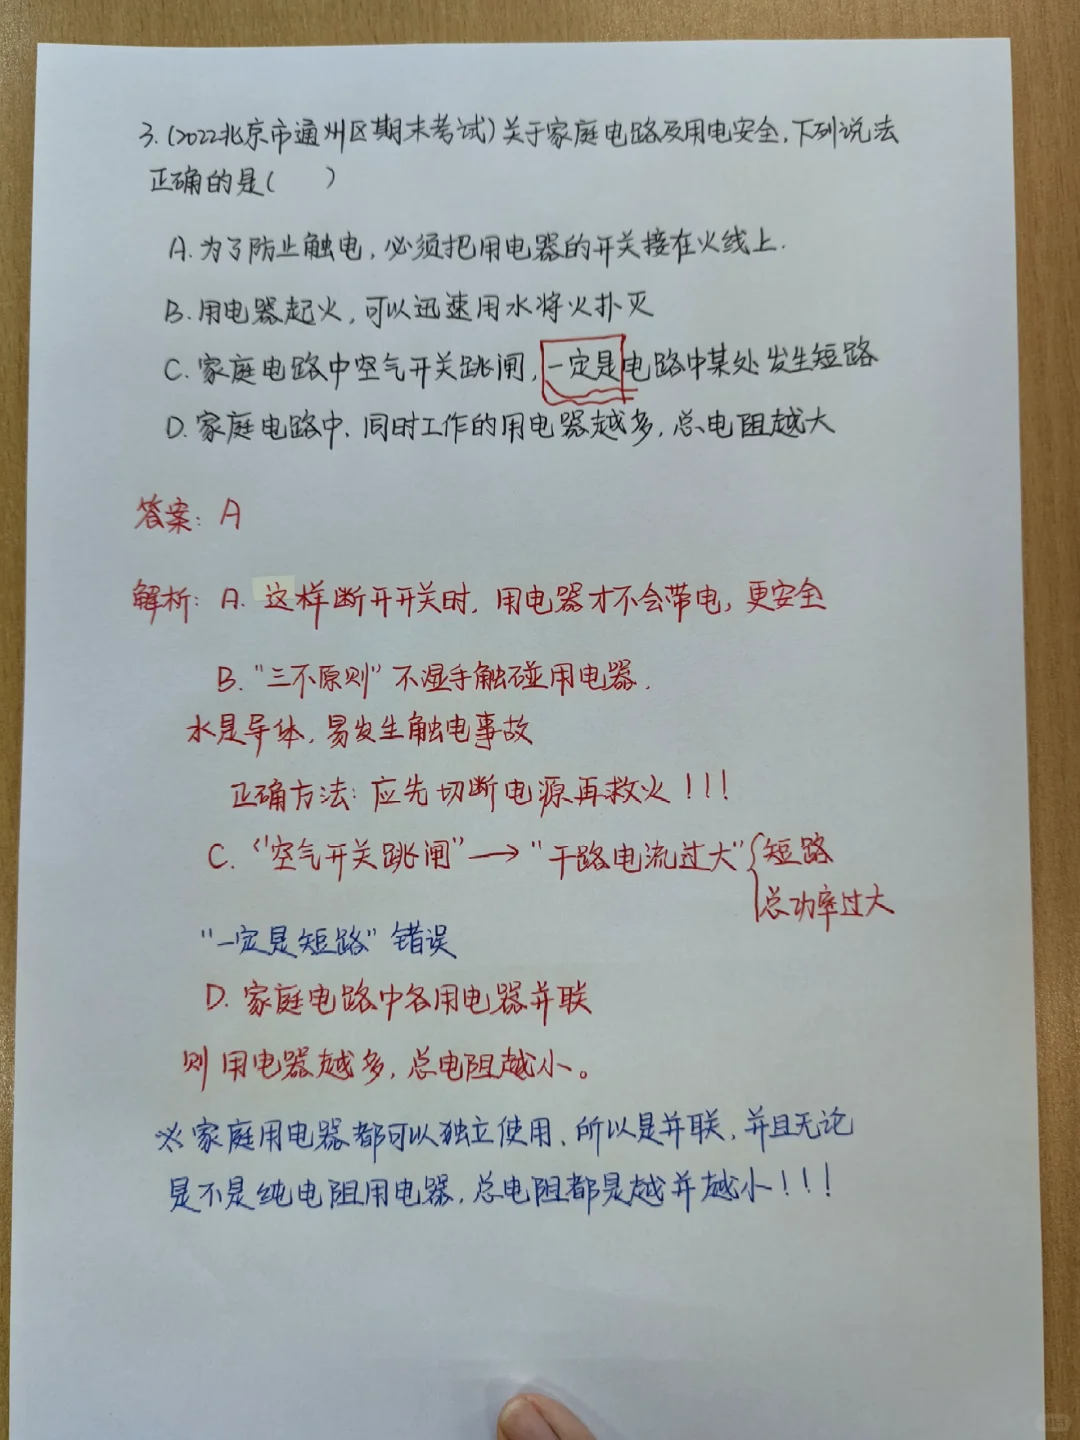 3.(2022北京市通州区期末考试)关于家庭电路及用电安全,下列说法
正确的是(    )
A.为了防止触电,必须把用电器的开关接在火线上.
B.用电器起火,可以迅速用水将火扑灭
C.家庭电路中空气开关跳闸,一定是电路中某处发生短路
D.家庭电路中,同时工作的用电器越多,总电阻越大
答案: A
解析: A. 这样断开开关时,用电器才不会带电,更安全
B.“三不原则”不湿手触碰用电器.
水是导体,易发生触电事故
正确方法:应先切断电源再救火!!!
C.“空气开关跳闸”→“干路电流过大”{短路
总功率过大
“一定是短路”错误
D. 家庭电路中各用电器并联
则用电器越多,总电阻越小。
※家庭用电器都可以独立使用,所以是并联,并且无论
是不是纯电阻用电器,总电阻都是越并越小!!!